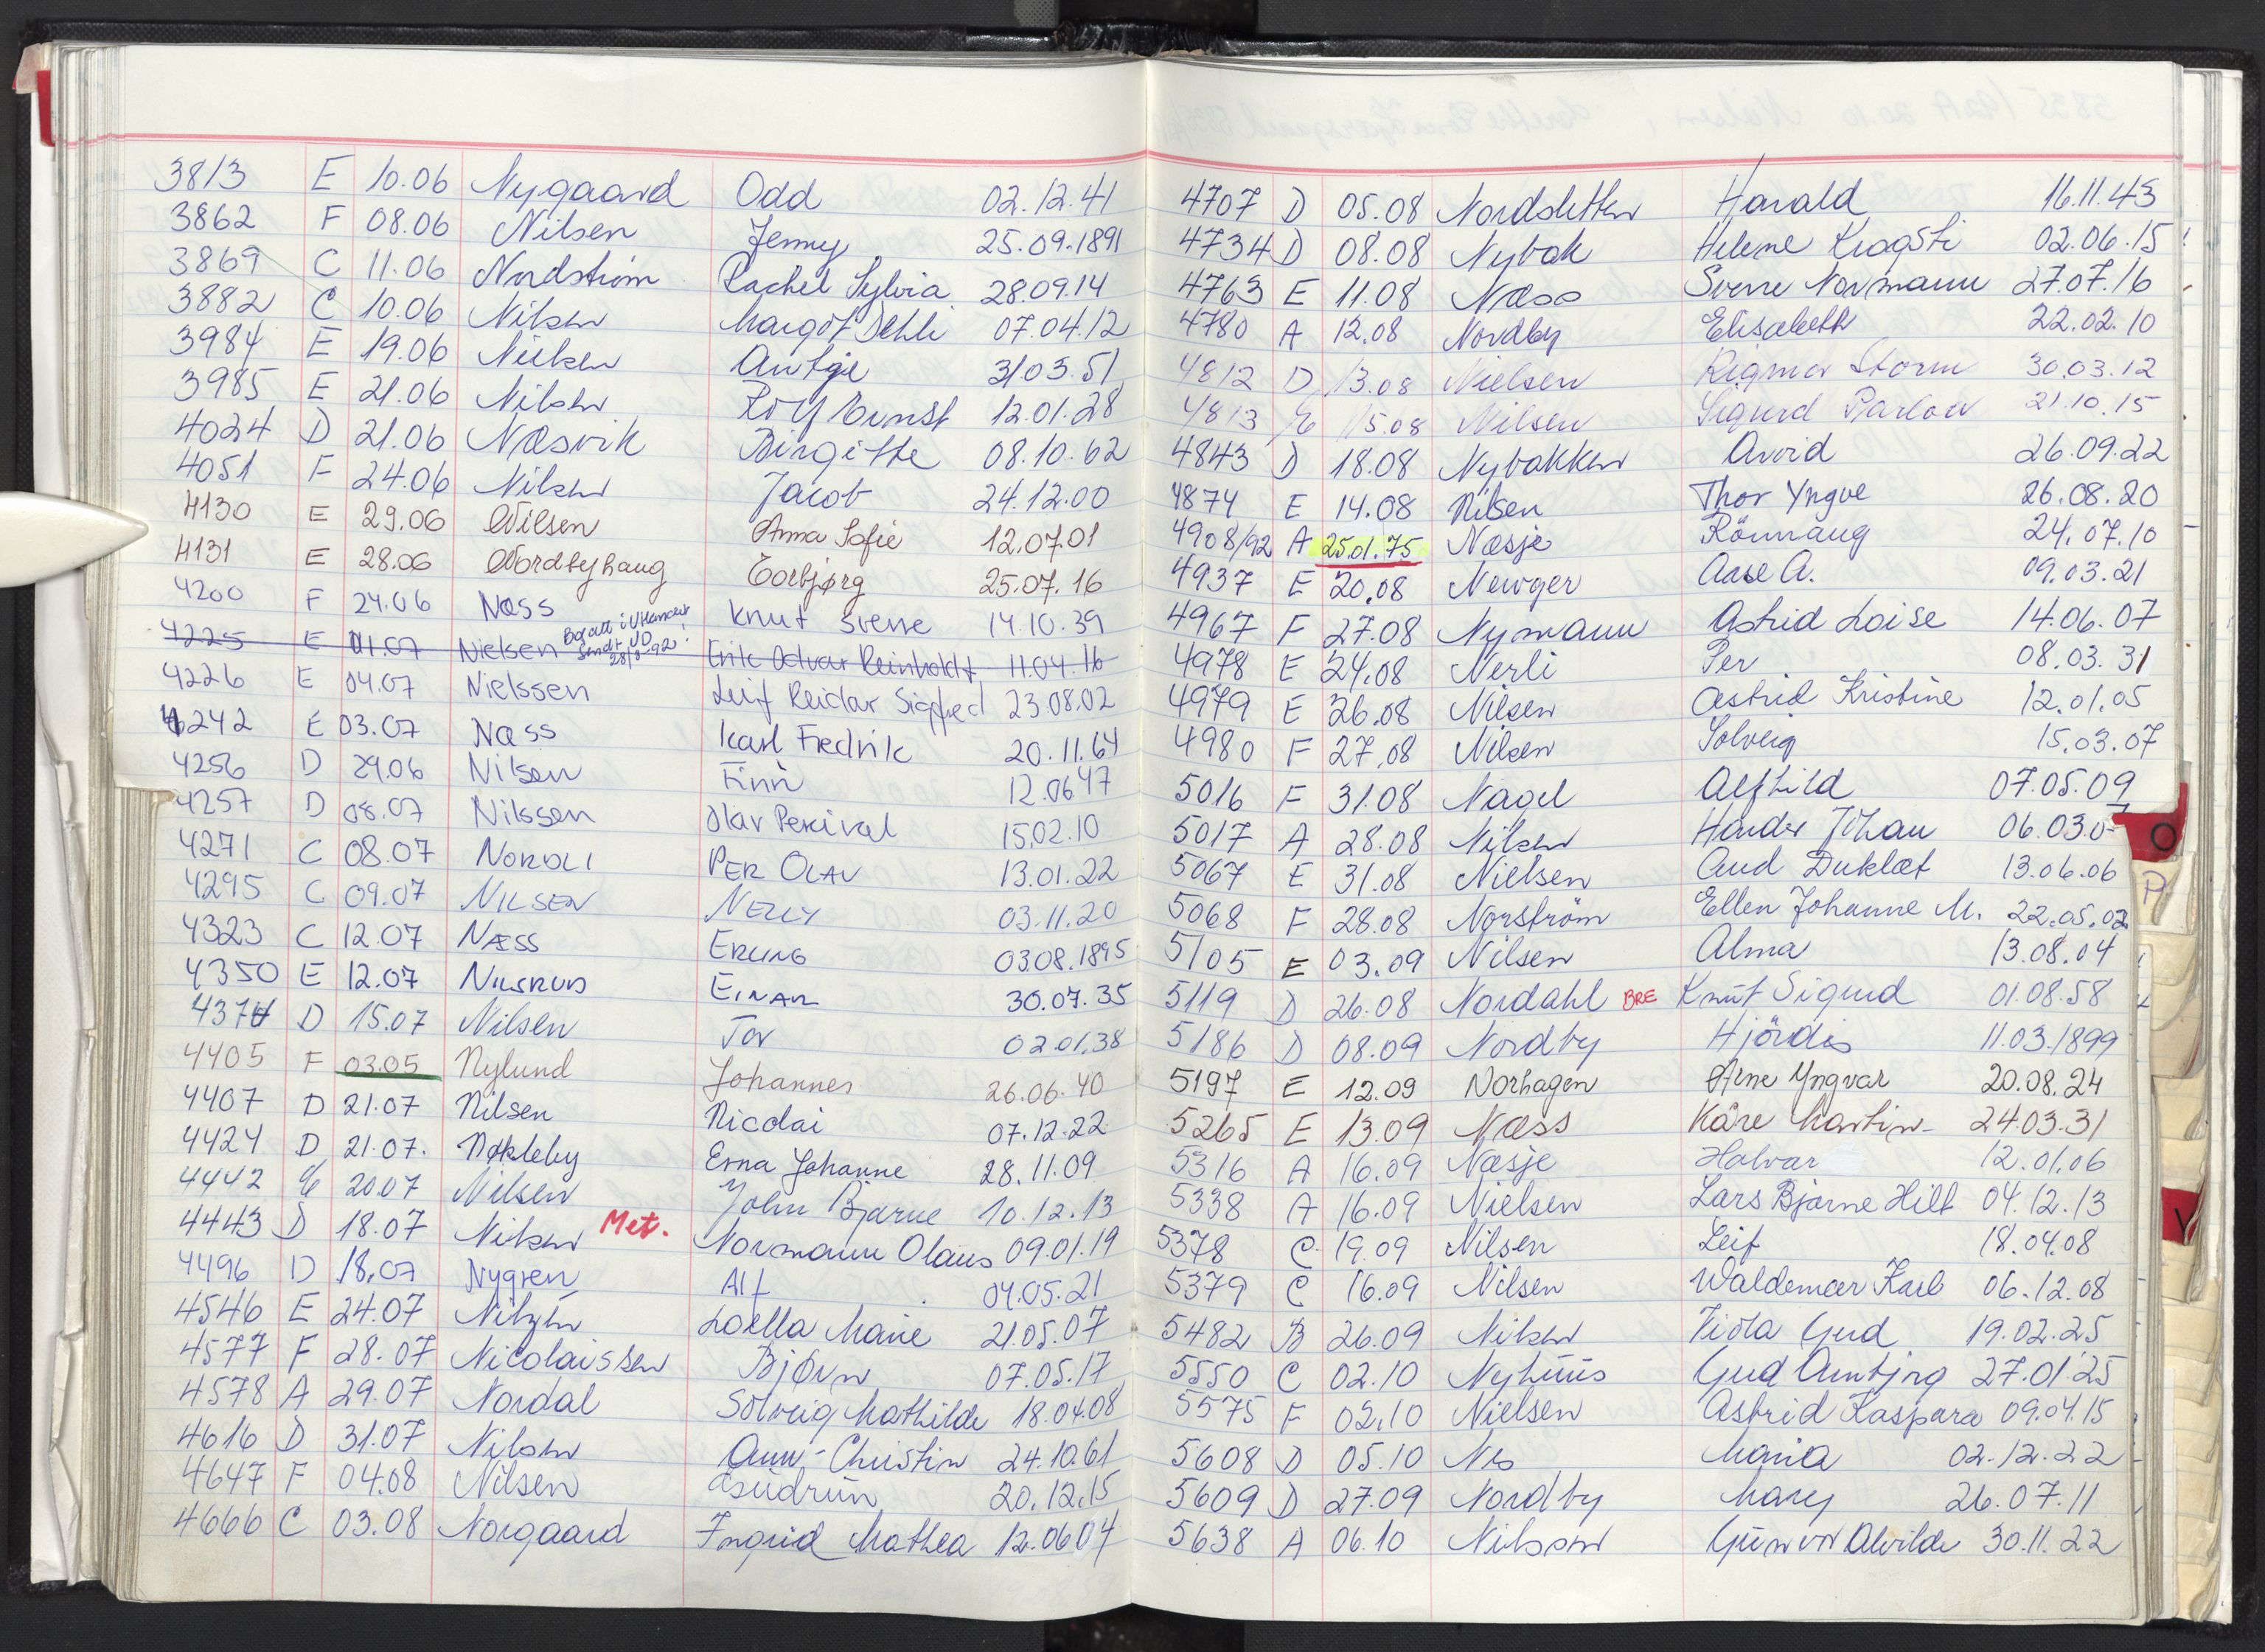 3813 E 10.06 Nygaard Odd 02.12.41
3862 F 08.06 Nilsen Jenny 25.09.1891
3869 C 11.06 Nordstrøm Rachel Sylvia 28.09.14
3882 C 10.06 Nilsen Margot Dehli 07.04.12
3984 E 19.06 Nielsen Antje 31.03.51
3985 E 21.06 Nilsen Rolf Ernst 12.01.28
4024 D 21.06 Næsvik Birgitte 08.10.62
4051 F 24.06 Nilsen Jacob 24.12.00
4130 E 29.06 Nilsen Anna Sofie 12.07.01
4131 E 28.06 Nordbyhaug Torbjørg 25.07.16
4200 F 24.06 Næss Knut Sverre 14.10.39
4225 E 01.07 Nielsen Bosatt i Utlandet! Sendt UD 28/8-92 Erik Odvar Reinholdt 11.04.16
4226 E 04.07 Nielssen Leif Reidar Sigfred 23.08.02
4242 E 03.07 Næss Karl Fredrik 20.11.64
4256 D 29.06 Nilsen Finn 12.06 47
4257 D 08.07 Nilssen Olav Percival 15.02.10
4271 C 08.07 NORDLI PER OLAV 13.01.22
4295 C 09.07 NILSEN NELLY 03.11.20
4323 C 12.07 NÆSS ERLING 03.08.1895
4350 E 12.07 NILSRUD EINAR 30.07.35
4374 D 15.07 Nilsen Tor 02.01.38
4405 F 03.05 Nylund Johannes 26.06.40
4407 D 21.07 Nilsen Nicolai 07.12.22
4424 D 21.07. Nøkleby Erna Johanne 28.11.09
4442 E 20.07 Nilsen John Bjarne 10.12.13
4443 D 18.07 Nilsen Met. Normann Olaus 09.01.19
4496 D 18.07 Nygren Alf 04.05.21
4546 E 24.07 Nitzin Loella Marie 21.05.07
4577 F 28.07 Nicolaissen Bjørn 07.05.17
4578 A 29.07 Nordal Solveig Mathilde 18.04.08
4616 D 31.07 Nilsen Ann-Christin 24.10.61
4647 F 04.08 Nilsen Gudrun 20.12.15
4666 C 03.08 Norgaard Ingrid Mathea 12.06 04
4707 D 05.08 Nordsletten Harald 16.11.43
4734 D 08.08 Nybak Helene Kragsti 02.06.15
4763 E 11.08 Næss Sverre Normann 27.07.16
4780 A 12.08 Nordby Elisabeth 22.02.10
4812 D 13.08 Nielsen Rigmor Storm 30.03.12
4813 E 15.08 Nilsen Sigurd Parlow 21.10.15
4843 D 18.08 Nybakken Arvid 26.09.22
4874 E 14.08 Nilsen Thor Yngve 26.08.20
4908/92 A 25.01.75 Næsje Rönnaug 24.07.10
4937 E 20.08 Newger Aase A. 09.03.21
4967 F 27.08 Nymann Astrid Loise 14.06.07
4978 E 24.08 Nerli Per 08.03.31
4979 E 26.08 Nilsen Astrid Kristine 12.01.05
4980 F 27.08 Nilsen Solveig 15.03.07
5016 F 31.08 Nagel Alfhild 07.05.09
5017 A 28.08 Nilsen Hander Johan 06.03.0
5067 E 31.08 Nielsen Aud Duklæt 13.06.06
5068 F 28.08 Norström Ellen Johanne M. 22.05.02
5105 E 03.09 Nilsen Alma 13.08.04
5119 D 26.08 Nordahl BRE Knut Sigurd 01.08.58
5186 D 08.09 Nordby Hjördis 11.03.1899
5197 E 12.09 Norhagen Arne Yngvar 20.08.24
5265 E 13.09 Næss Kåre Martin 24.03.31
5316 A 16.09 Næsje Halvar 12.01.06
5338 A 16.09 Nielsen Lars Bjarne Hilt 04.12.13
5378 C 19.09 Nilsen Leif 18.04.08
5379 C 16.09 Nilsen Waldemar Karl 06.12.08
5482 B 26.09 Nilsen Viola Gud 19.02.25
5550 C 02.10 Nyhuus Gud Annbjørg 27.01.25
5575 F 02.10 Nielsen Astrid Kaspara 09.04.15
5608 D 05.10 Nes Maria 02.12.22
5609 D 27.09 Nordby Mary 26.07.11
5638 A 06.10 Nilsson Gunvor Alvilde 30.11.22
O
P